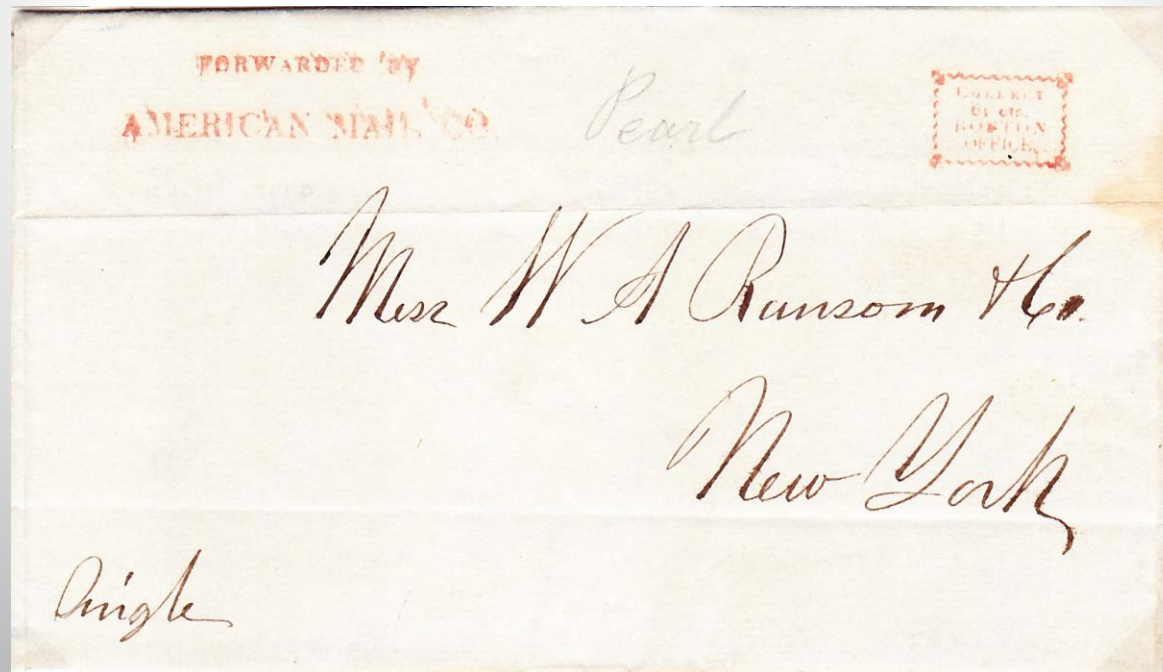 FORWARDED BY
AMERICAN MAIL CO.
Pearl
COLLECT
6¼ cts.
BOSTON
OFFICE.
Mess W A Ransom & Co.
New York
Single